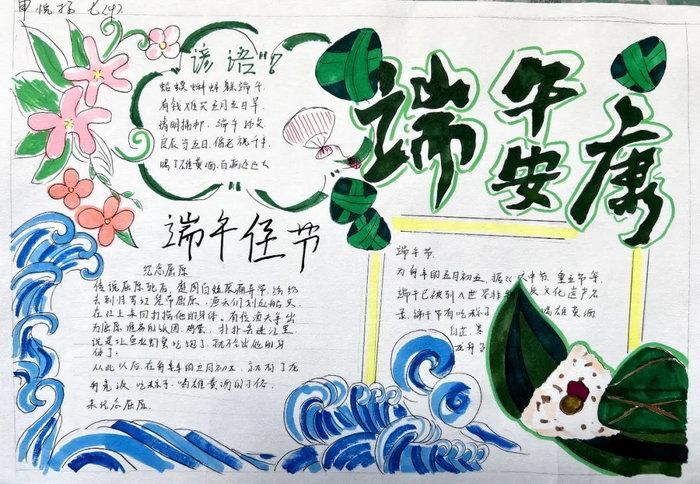 申悦扬 七(4)
谚语
蛤蟆蝌蚪躲端午
有钱难买五月五日旱
清明插柳,端午
良辰当五日,偕老祝千年
喝了雄黄酒,百病远远
端午安康
端午佳节
纪念屈原
传说屈原死后,楚国百姓哀痛异常,纷纷
去到汨罗江凭吊屈原,渔夫们划起船只
在江上来回打捞他的身体。有位渔夫拿出
为屈原准备的饭团、鸡蛋,扑扑丢进江里
说是让鱼龙虾蟹吃饱了,就不会咬他的身
体了。
从此以后,在每年的五月初五,就有了龙
舟竞渡、吃粽子、喝雄黄酒的习俗
来纪念屈原.
端午节
为每年的五月初五,据 午节,重五节等,
端午已被列入世界非 文化遗产名
录,端午节有吃粽 喝雄黄酒